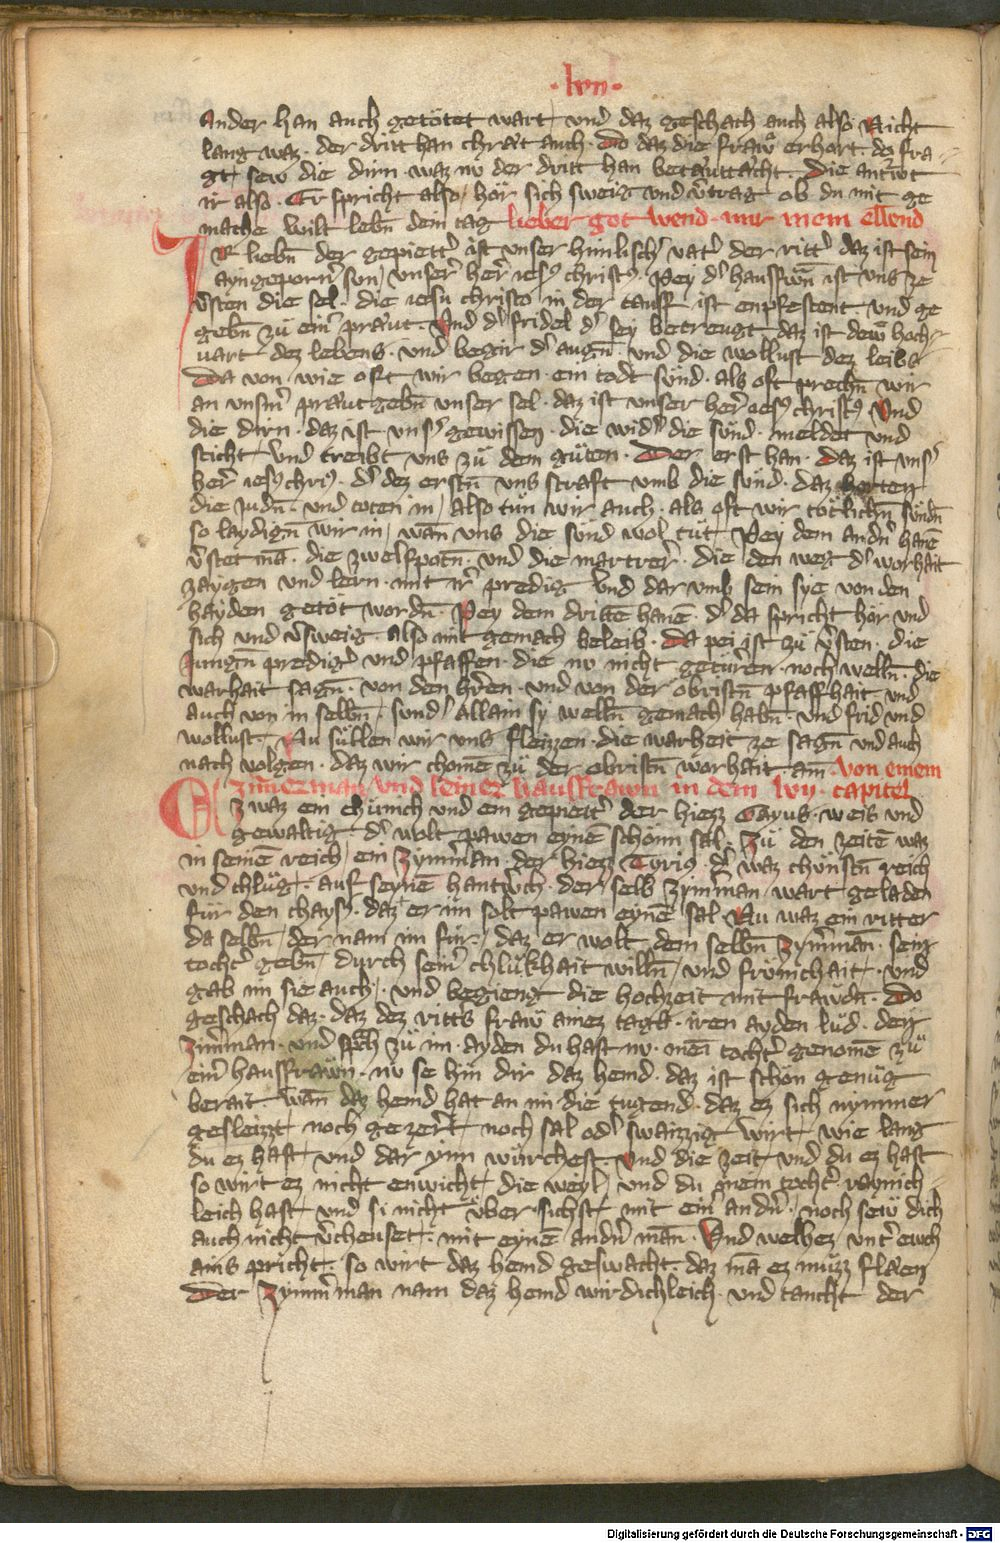 ·lvii·
ander han auch getötet wart und daz geschach auch also Nicht
lang waz · der dritt han chrät auch · Do daz die fraw erhort · do fra-
gt sew die dirn · waz nv der dritt han betäuttächt · Die antwᵒt
ir also · Er spricht also / hör sich sweig und v̄trag ob du mit ge
mache wilt lebn̄ dein tag lieber got wend · mir mein ellend
Ir liebn̄ der gepiett᷑ ist unser himlisch᷑ vat᷑ der ritt᷑ daz ist sein
ayngeporn᷑ sun / unser᷑ her᷑ iesꝰ christꝰ · Pey d᷑ hausfrawn̄ ist uns ze
v᷑sten die sel · die iesu christo in der tauff ist enpfestent · und ge
gebn̄ zu ein᷑ praut · Und d᷑ fridel d᷑ sey betreugt daz ist dew hoch-
vart dez lebens · und begir d᷑ augn̄ · und die wollust dez leibs
Da von · wie oft wir begen · ein todt sünd · als oft prechn̄ wir
an unsm᷑ prautgebn̄ unser sel · daz ist unser her᷑ iesꝰ christꝰ Und
die dirn · daz ist uns᷑ gewissen · die wid᷑ die sünd · meldet und
sticht und treibt uns zu dem güten · Der erst han · daz ist uns᷑
her᷑ iesꝰ chrꝰ · d᷑ dez erstn̄ uns straft umb die sünd · daz horten
die Judn̄ · und toten in / also tün wir auch · als oft wir tötlichn̄ sündn̄
so laydign̄ wir in / wān uns die sünd wol tüt · Pey dem andn᷑ hanē
v᷑stet mā · die zwelfpotn̄ · und die martrer᷑ · die den weg d᷑ worhait
zaygen und lern · mit ir᷑ predig Und dar umb sein sye von den
hayden getöt wordn̄ · Pey dem drittē hanē · d᷑ da spricht hör und
sich und v᷑sweig also mit gemach beleib · Da pei ist zu v᷑sten · die
Jungn̄ predig᷑ und pfaffen · die nv nicht getüren · noch welln̄ · die
warhait sagn̄ · von den h᷑ren · und von der obristn̄ pfaffhait und
auch von in selbn̄ · sund᷑ allain sy welln̄ gemach habn̄ · und frid und
wollust · Nu süllen wir uns fleizzen · die warheit ze sagn̄ und auch
nach volgen · daz wir chomē zu der obristn̄ worhait am̄ · von einem
zim᷑erman und seiner hausfrawn in dem lvij · capitel
Ez waz ein chünich und ein gepieit᷑ der hiezz Gayus · weis und
gewaltig · d᷑ wolt pawen eynē schönn sal · Zu den zeitē waz
in seinē reich / ein zym᷑man · der hiezz Tyris · d᷑ waz chönstn̄ reich
und chlüg · auf seynē hantwᵒch · der selb zym᷑man · wart geladen
für den chays᷑ · daz er im solt pawen eynē sal · Nu waz ein ritter
da selbn̄ / der nam im für / daz er wolt dem selbn̄ zym᷑man̄ · sein
tocht᷑ gebn̄ / durch sein᷑ chlükhait willn̄ / und frümichait · und
gab im sie auch · und begieng die hochzeit mit frawdn̄ · Do
geschach daz · daz dez ritt᷑s fraw ainez tags · iren ayden lud · den
zim᷑man · und sp᷑ch zu im · ayden du hast nv · mēī tocht᷑ genomē zu
ein᷑ hausfrawn · nv se hin dir daz hemd · daz ist schön genüg
berait wān daz hemd hat an im die tugend · daz ez sich nymmer
gesleizzt noch gezer᷑t noch sal od᷑ swaizzig wirt · wie lang
du ez hast und dar ynn würchest · Und die zeit und du ez hast
so wirt ez nicht enwicht / die weyl / und du mein tocht᷑ raynich-
leich hast / und si nicht über sichst mit ein᷑ andn᷑ · noch sew dich
auch nicht v᷑cheuset · mit eynē andn᷑ mān · Und welhez unt᷑ ewch
ains pricht · so wirt daz hemd geswacht · daz mā ez muzz flaen
Der zym᷑man nam daz hemd wirdichleich · und taucht der
Digitalisierung gefördert durch die Deutsche Forschungsgemeinschaft - DFG